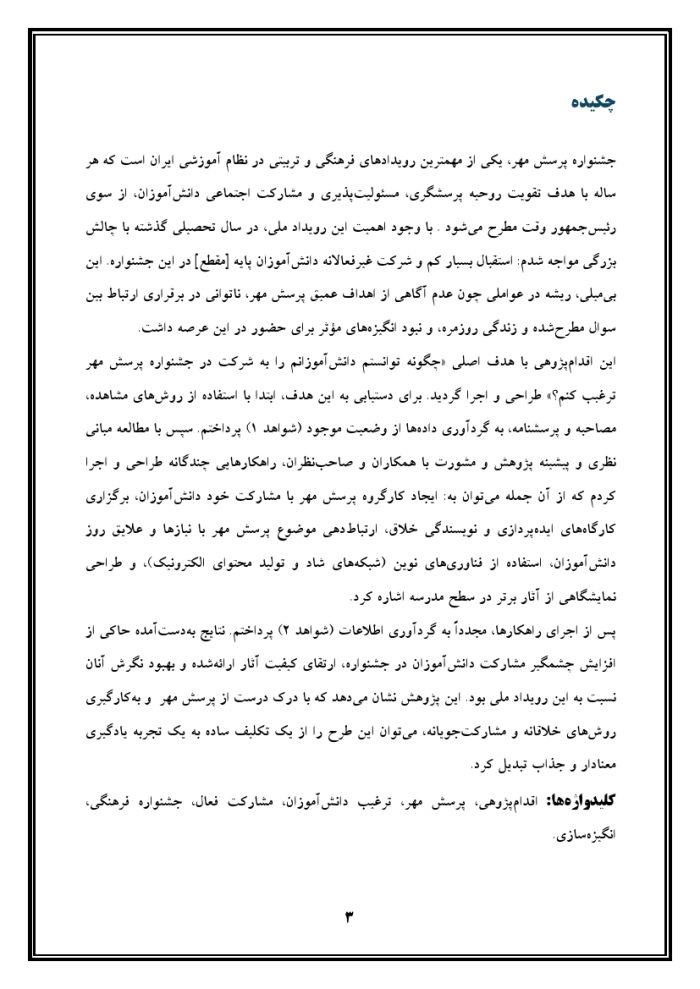 چکیده
جشنواره پرسش مهر، یکی از مهمترین رویدادهای فرهنگی و تربیتی در نظام آموزشی ایران است که هر
ساله با هدف تقویت روحیه پرسشگری، مسئولیت‌پذیری و مشارکت اجتماعی دانش‌آموزان، از سوی
رئیس‌جمهور وقت مطرح می‌شود . با وجود اهمیت این رویداد ملی، در سال تحصیلی گذشته با چالش
بزرگی مواجه شدم: استقبال بسیار کم و شرکت غیرفعالانه دانش‌آموزان پایه [مقطع] در این جشنواره. این
بی‌میلی، ریشه در عواملی چون عدم آگاهی از اهداف عمیق پرسش مهر، ناتوانی در برقراری ارتباط بین
سوال مطرح‌شده و زندگی روزمره، و نبود انگیزه‌های مؤثر برای حضور در این عرصه داشت.
این اقدام‌پژوهی با هدف اصلی «چگونه توانستم دانش‌آموزانم را به شرکت در جشنواره پرسش مهر
ترغیب کنم؟» طراحی و اجرا گردید. برای دستیابی به این هدف، ابتدا با استفاده از روش‌های مشاهده،
مصاحبه و پرسشنامه، به گردآوری داده‌ها از وضعیت موجود (شواهد ۱) پرداختم. سپس با مطالعه مبانی
نظری و پیشینه پژوهش و مشورت با همکاران و صاحب‌نظران، راهکارهایی چندگانه طراحی و اجرا
کردم که از آن جمله می‌توان به: ایجاد کارگروه پرسش مهر با مشارکت خود دانش‌آموزان، برگزاری
کارگاه‌های ایده‌پردازی و نویسندگی خلاق، ارتباط‌دهی موضوع پرسش مهر با نیازها و علایق روز
دانش‌آموزان، استفاده از فناوری‌های نوین (شبکه‌های شاد و تولید محتوای الکترونیک)، و طراحی
نمایشگاهی از آثار برتر در سطح مدرسه اشاره کرد.
پس از اجرای راهکارها، مجدداً به گردآوری اطلاعات (شواهد ۲) پرداختم. نتایج به‌دست‌آمده حاکی از
افزایش چشمگیر مشارکت دانش‌آموزان در جشنواره، ارتقای کیفیت آثار ارائه‌شده و بهبود نگرش آنان
نسبت به این رویداد ملی بود. این پژوهش نشان می‌دهد که با درک درست از پرسش مهر  و به‌کارگیری
روش‌های خلاقانه و مشارکت‌جویانه، می‌توان این طرح را از یک تکلیف ساده به یک تجربه یادگیری
معنادار و جذاب تبدیل کرد.
کلیدواژه‌ها: اقدام‌پژوهی، پرسش مهر، ترغیب دانش‌آموزان، مشارکت فعال، جشنواره فرهنگی،
انگیزه‌سازی.
۳